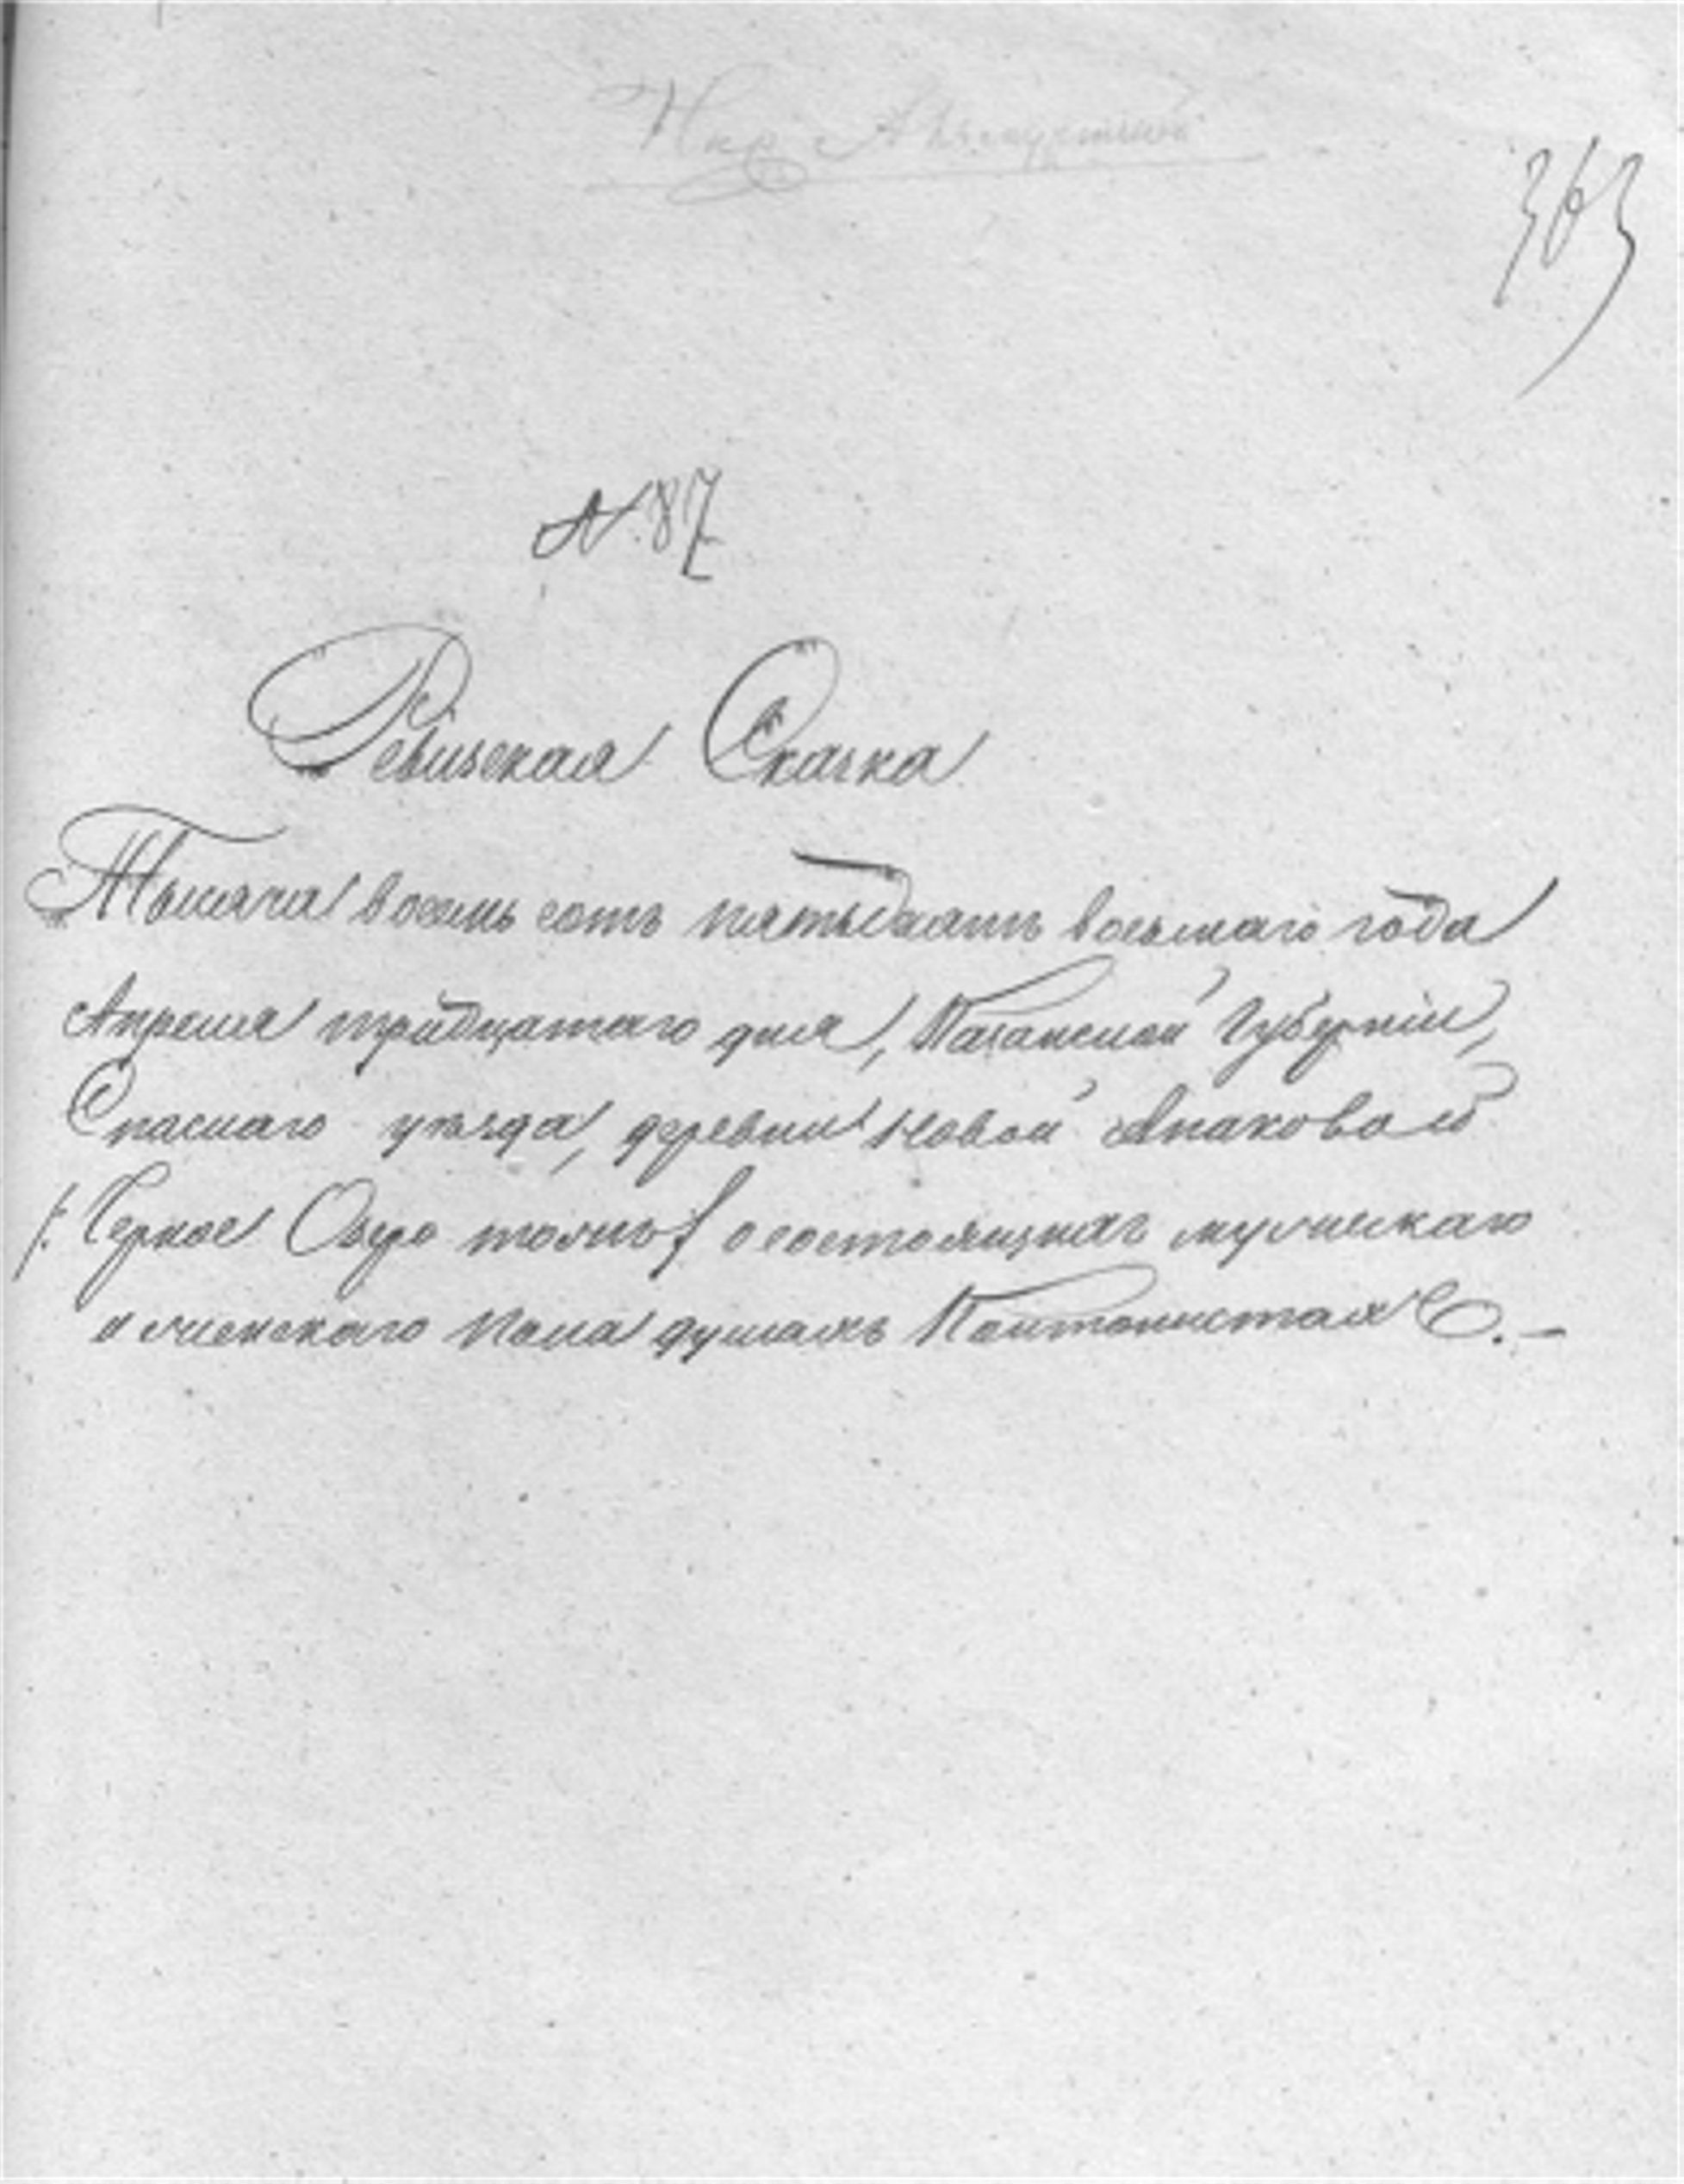 363
№ 87
Ревизская Сказка
Тысяча восемь сотъ пятьдесятъ восьмаго года
Апреля тридцатаго дня, Казанской Губерніи,
Спаскаго уѣзда, деревни Новой Амзиковой
/: Черное Озеро тожъ :/ о состоящихъ мужескаго
и женскаго пола душахъ Кантонистахъ. –